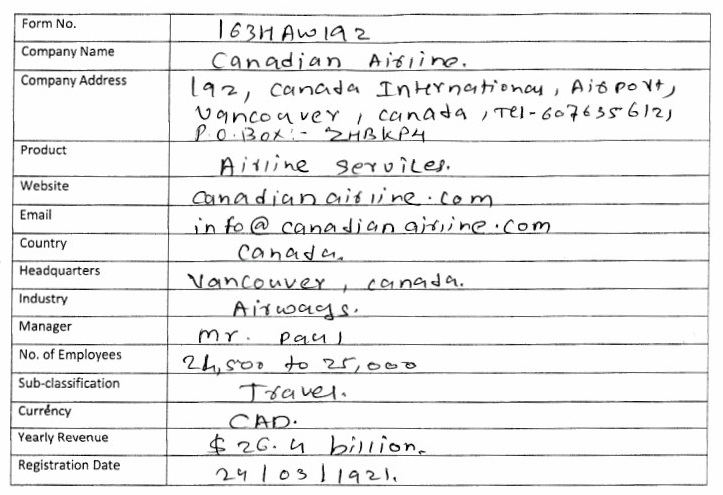 Form No. 163HAW192
Company Name Canadian Airline.
Company Address 192, Canada International, Airport,
Vancouver, Canada, Tel-607635612,
P.O.Box:- 2HBKP4
Product Airline Services.
Website canadianairline.com
Email info@canadianairline.com
Country Canada.
Headquarters Vancouver, Canada.
Industry Airways.
Manager Mr. Paul
No. of Employees 24,500 to 25,000
Sub-classification Travel.
Currency CAD.
Yearly Revenue $26.4 billion.
Registration Date 24/03/1921.